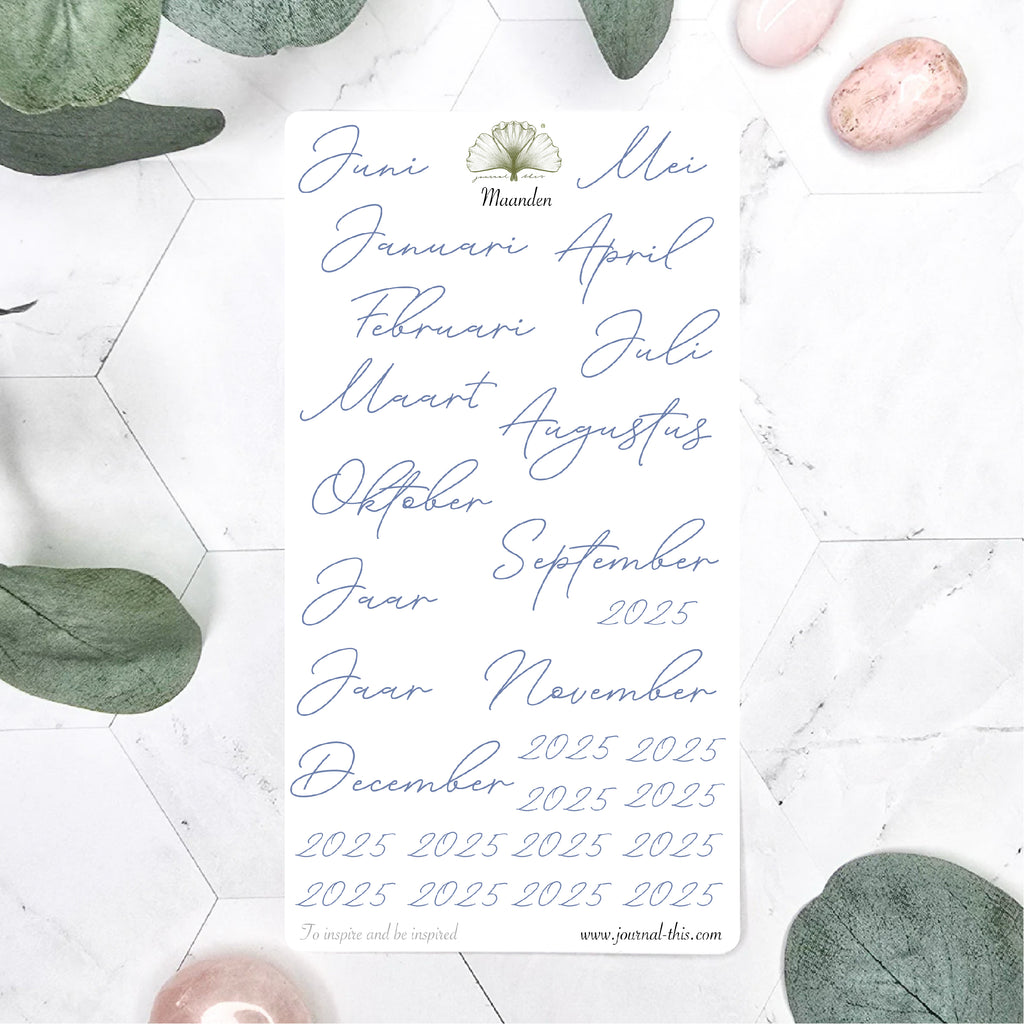 Juni
Mei
journal this
Maanden
Januari
April
Februari
Juli
Maart
Augustus
Oktober
September
Jaar
2025
Jaar
November
December
2025 2025
2025 2025
2025 2025 2025 2025
2025 2025 2025 2025
To inspire and be inspired
www.journal-this.com